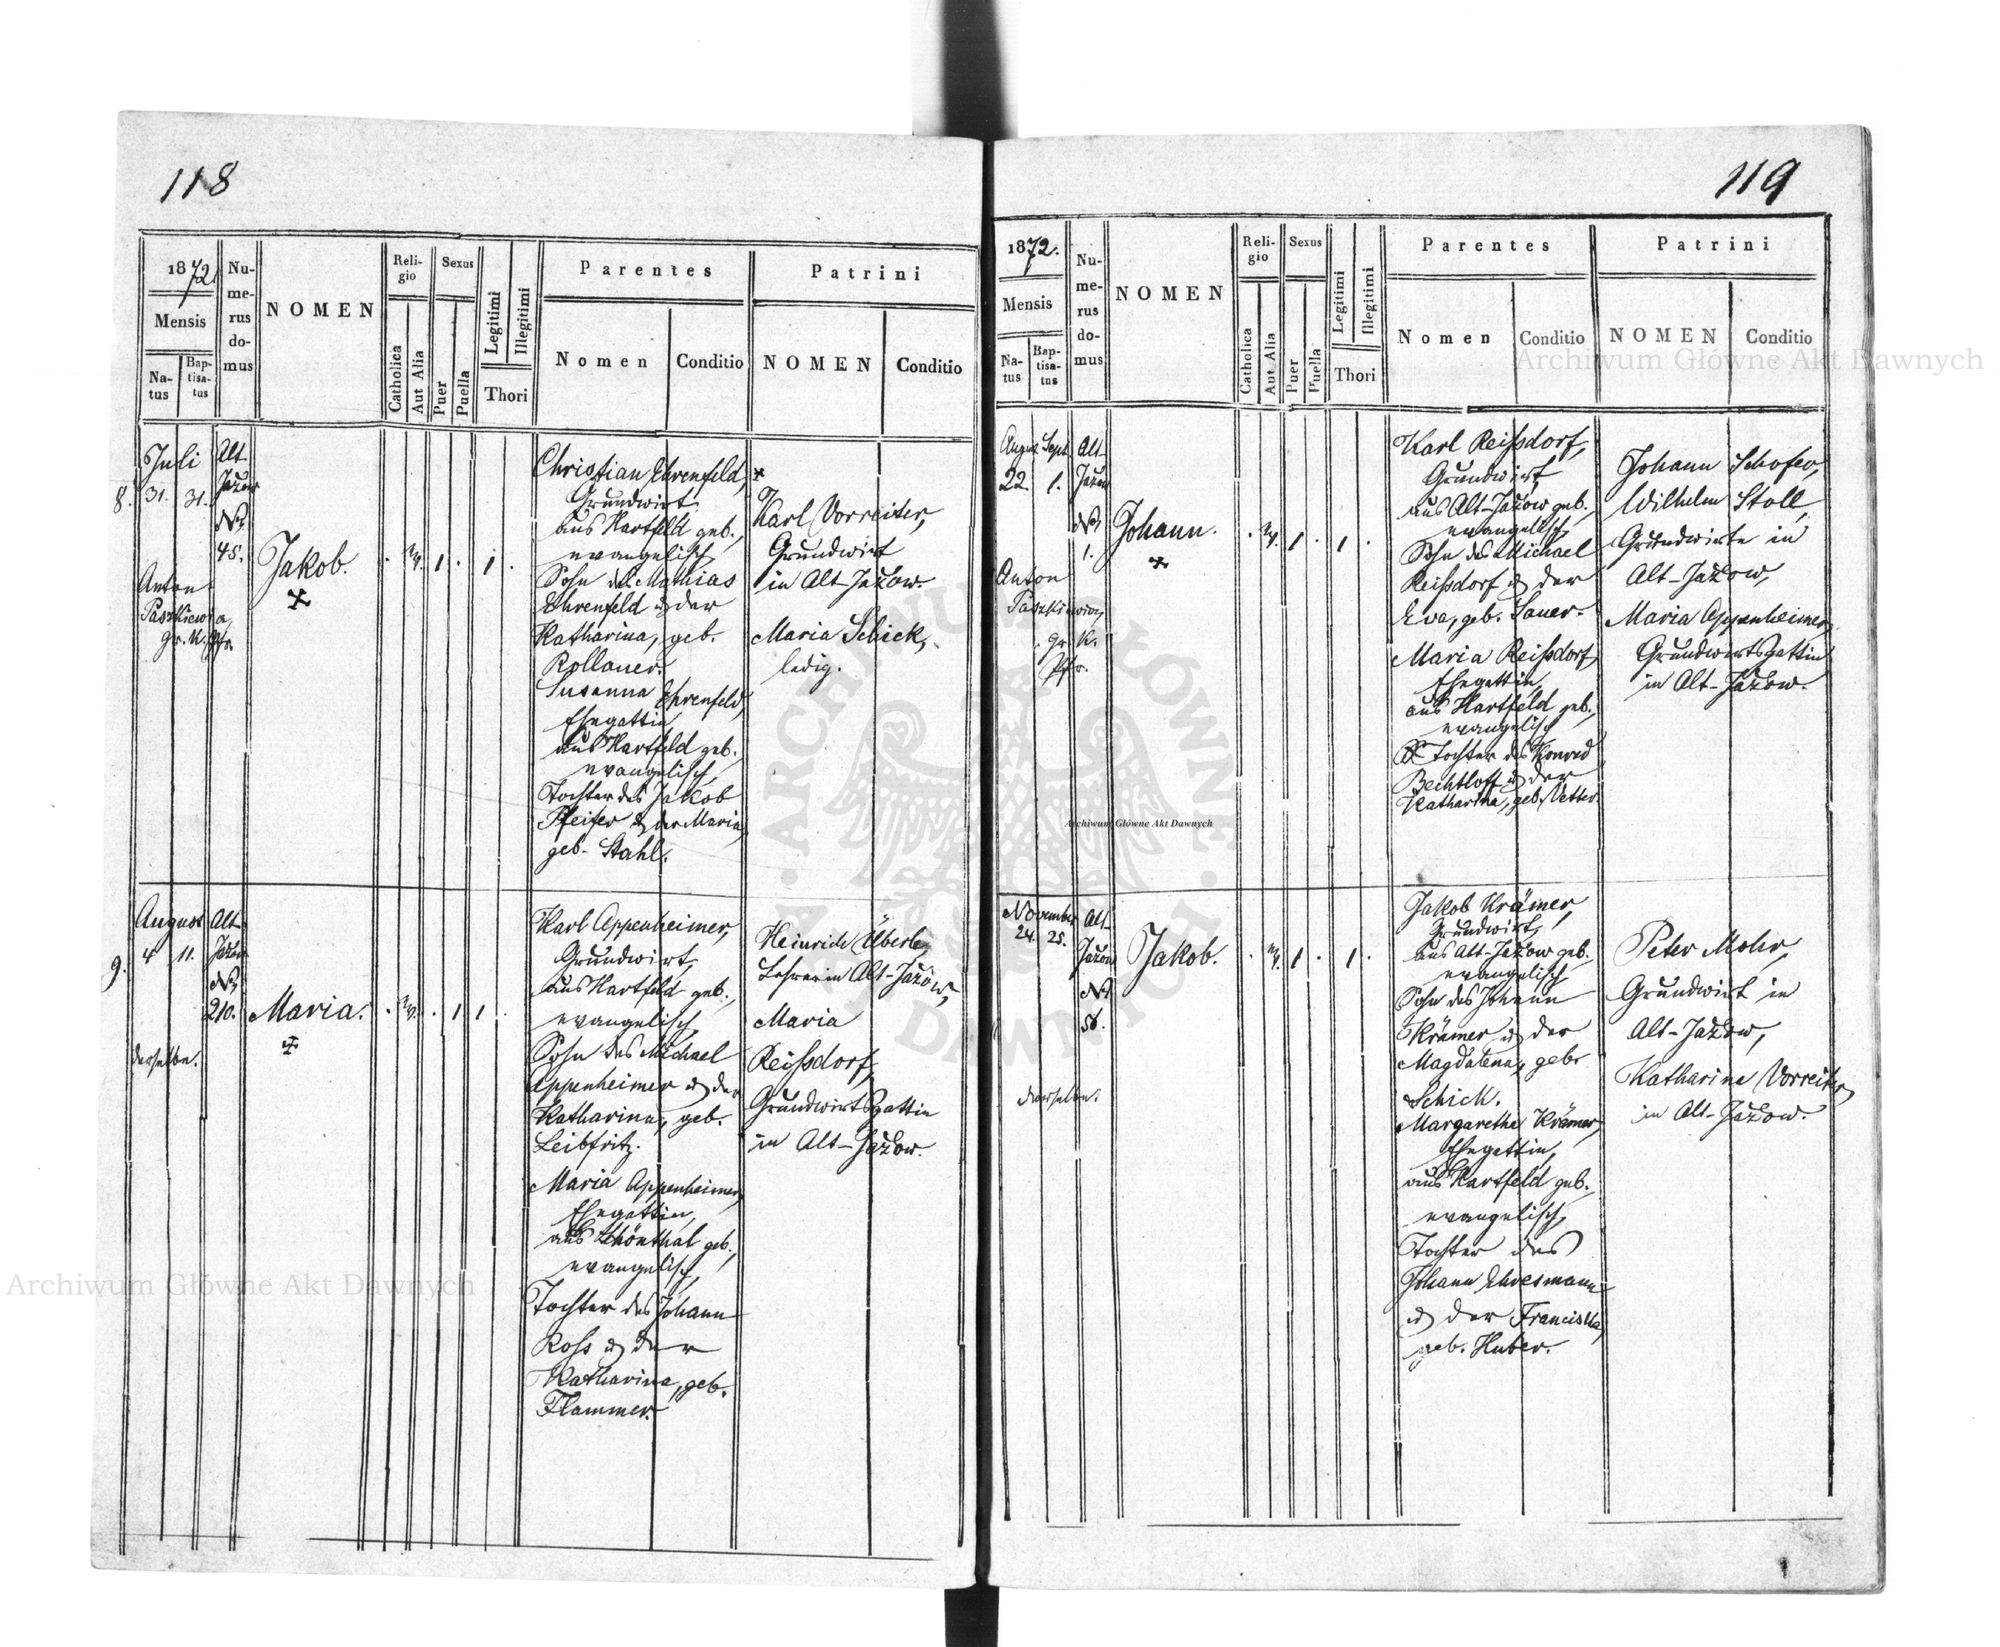 118
1872.
Mensis
Na-
tus
Bap-
tisa-
tus
Nu-
me-
rus
do-
mus
NOMEN
Reli-
gio
Catholica
Aut Alia
Sexus
Puer
Puella
Legitimi
Illegitimi
Thori
Parentes
Nomen
Conditio
Patrini
NOMEN
Conditio
8.
Juli
31. 31.
Alt
Jażow
No
45.
Anton
Paszkiewicz,
gr. k. Pfr.
Jakob.
1
1
Christian Ehrenfeld,
Grundwirt,
aus Hartfeld geb.,
evangelisch,
Sohn des Mathias
Ehrenfeld u. der
Katharina, geb.
Rollauer.
Susanna Ehrenfeld,
Ehegattin,
aus Hartfeld geb.,
evangelisch,
Tochter des Jakob
Pfeifer u. der Maria,
geb. Stahl.
Karl Vorreiter,
Grundwirt
in Alt-Jażow.
Maria Schick,
ledig.
9.
August
4 11.
Alt
Jażow
No
210.
derselbe.
Maria.
1
1
Karl Appenheimer,
Grundwirt,
aus Hartfeld geb.,
evangelisch,
Sohn des Michael
Appenheimer u. der
Katharina, geb.
Leibfritz.
Maria Appenheimer,
Ehegattin,
aus Schönthal geb.,
evangelisch,
Tochter des Johann
Ross u. der
Katharina, geb.
Flammer.
Heinrich Äberle,
Lehrer in Alt-Jażow,
Maria
Reißdorf,
Grundwirtsgattin
in Alt-Jażow.
119
1872.
Mensis
Na-
tus
Bap-
tisa-
tus
Nu-
me-
rus
do-
mus
NOMEN
Reli-
gio
Catholica
Aut Alia
Sexus
Puer
Puella
Legitimi
Illegitimi
Thori
Parentes
Nomen
Conditio
Patrini
NOMEN
Conditio
August Sept.
22. 1.
Alt
Jażow
No
1.
Anton
Paszkiewicz,
gr. k.
Pfr.
Johann.
1
1
Karl Reißdorf,
Grundwirt,
aus Alt-Jażow geb.,
evangelisch,
Sohn des Michael
Reißdorf u. der
Eva, geb. Sauer.
Maria Reißdorf,
Ehegattin,
aus Hartfeld geb.,
evangelisch
Tochter des Konrad
Bechtloff u. der
Katharina, geb. Vetter.
Johann Schofer,
Wilhelm Stoll,
Grundwirte in
Alt-Jażow,
Maria Appenheimer,
Grundwirtsgattin
in Alt-Jażow.
November
24. 25.
Alt-
Jażow
No
56.
derselbe.
Jakob.
1
1
Jakob Krämer,
Grundwirt,
aus Alt-Jażow geb.,
evangelisch
Sohn des Johann
Krämer u. der
Magdalena, geb.
Schick.
Margaretha Krämer,
Ehegattin,
aus Hartfeld geb.,
evangelisch,
Tochter des
Johann Ehresmann
u. der Franciska,
geb. Huber.
Peter Mohr,
Grundwirt in
Alt-Jażow,
Katharina Vorreiter,
in Alt-Jażow.
Archiwum Główne Akt Dawnych
Archiwum Główne Akt Dawnych
Archiwum Główne Akt Dawnych
· ARCHIWUM GŁÓWNE · AKT DAWNYCH